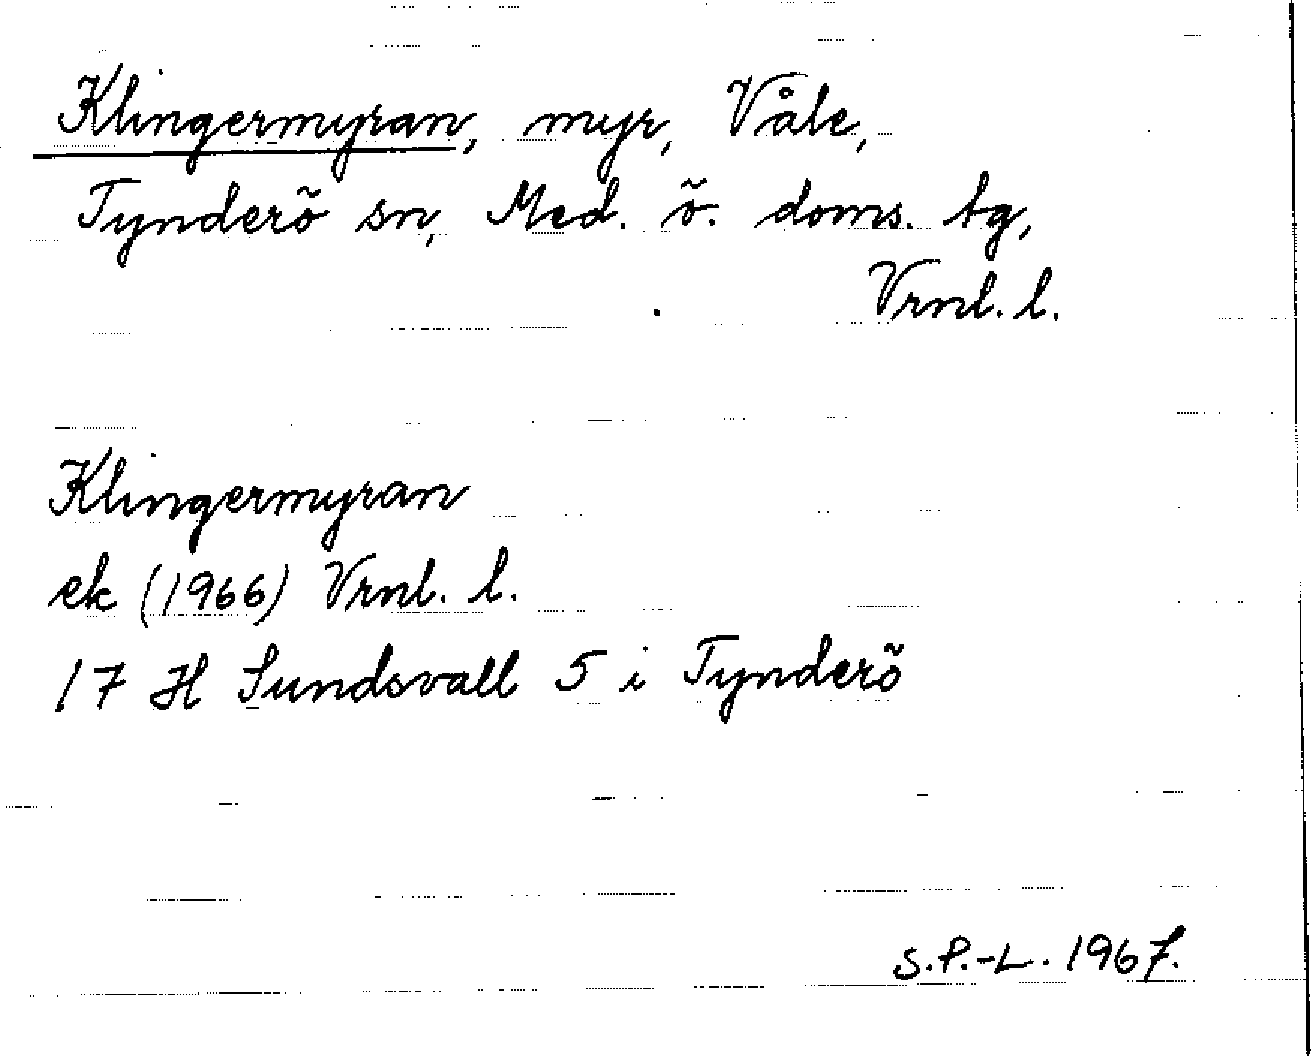 Klingermyran, myr, Våle,
Tynderö sn, Med. ö. doms. tg,
Vrnl. l.
Klingermyran
ek (1966) Vrnl. l.
17 H Sundsvall 5 i Tynderö
S.P.-L. 1967.